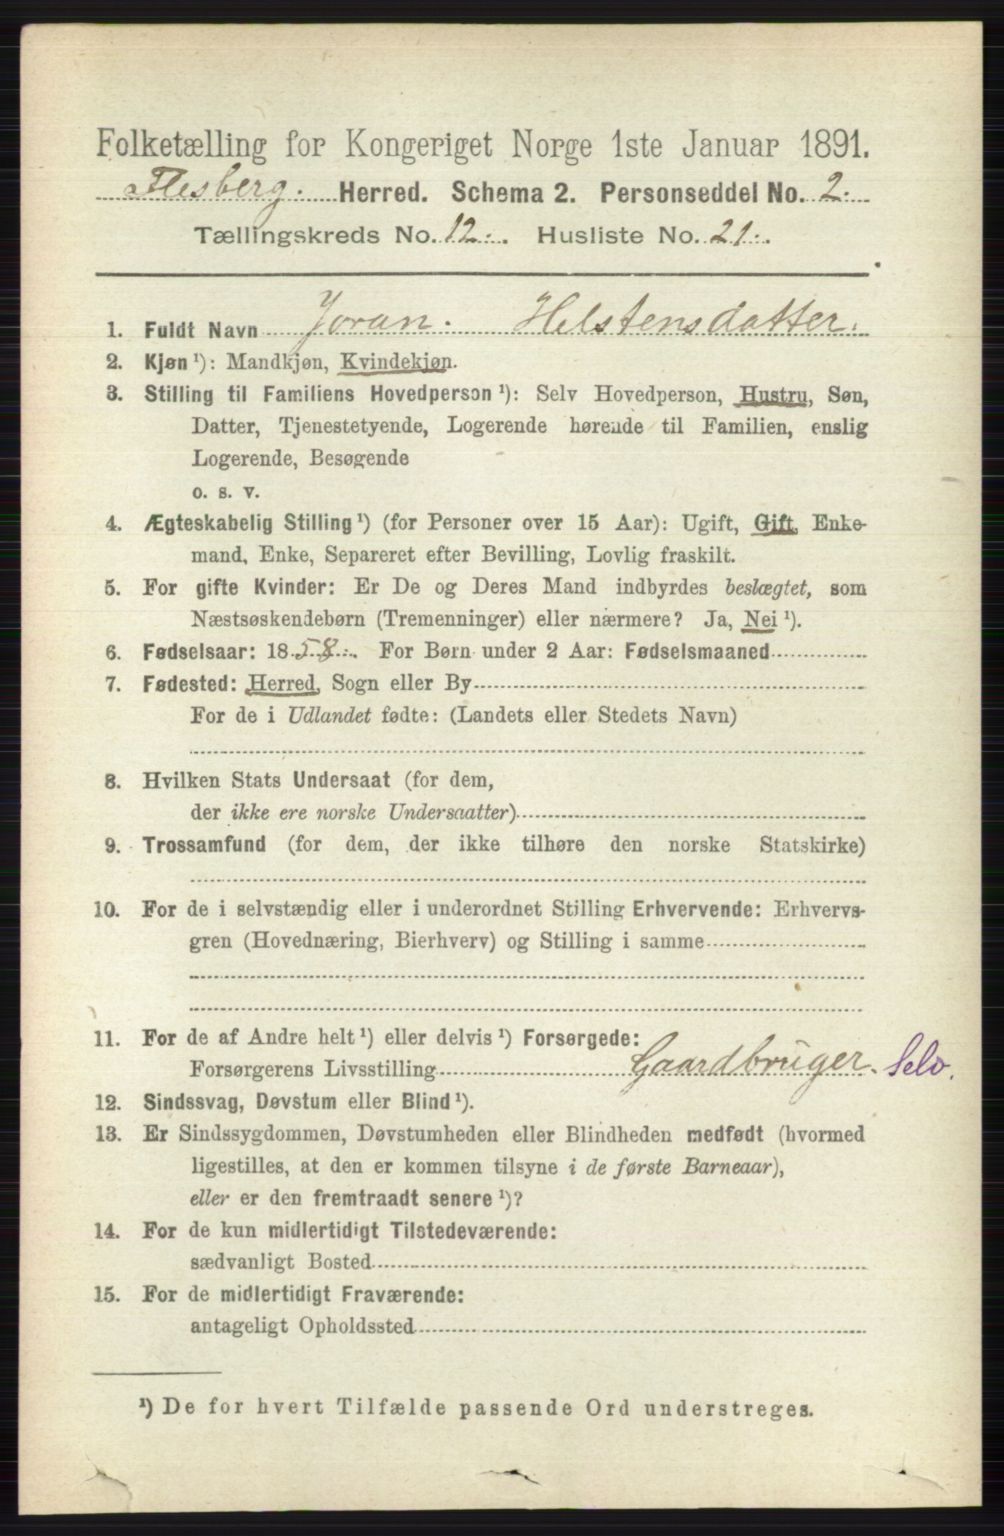 Folketælling for Kongeriget Norge 1ste Januar 1891.
Flesberg. Herred. Schema 2. Personseddel No. 2.
Tællingskreds No. 12. Husliste No. 21.
1. Fuldt Navn Joran. Helstensdatter.
2. Kjøn ¹): Mandkjøn, Kvindekjøn.
3. Stilling til Familiens Hovedperson ¹): Selv Hovedperson, Hustru, Søn,
Datter, Tjenestetyende, Logerende hørende til Familien, enslig
Logerende, Besøgende
o. s. v.
4. Ægteskabelig Stilling ¹) (for Personer over 15 Aar): Ugift, Gift, Enke-
mand, Enke, Separeret efter Bevilling, Lovlig fraskilt.
5. For gifte Kvinder: Er De og Deres Mand indbyrdes beslægtet, som
Næstsøskendebørn (Tremenninger) eller nærmere? Ja, Nei ¹).
6. Fødselsaar: 1858. For Børn under 2 Aar: Fødselsmaaned
7. Fødested: Herred, Sogn eller By
For de i Udlandet fødte: (Landets eller Stedets Navn)
8. Hvilken Stats Undersaat (for dem,
der ikke ere norske Undersaatter)
9. Trossamfund (for dem, der ikke tilhøre den norske Statskirke)
10. For de i selvstændig eller i underordnet Stilling Erhvervende: Erhvervs-
gren (Hovednæring, Bierhverv) og Stilling i samme
11. For de af Andre helt ¹) eller delvis ¹) Forsørgede:
Forsørgerens Livsstilling Gaardbruger. Selv.
12. Sindssvag, Døvstum eller Blind ¹).
13. Er Sindssygdommen, Døvstumheden eller Blindheden medfødt (hvormed
ligestilles, at den er kommen tilsyne i de første Barneaar),
eller er den fremtraadt senere ¹)?
14. For de kun midlertidigt Tilstedeværende:
sædvanligt Bosted
15. For de midlertidigt Fraværende:
antageligt Opholdssted
¹) De for hvert Tilfælde passende Ord understreges.